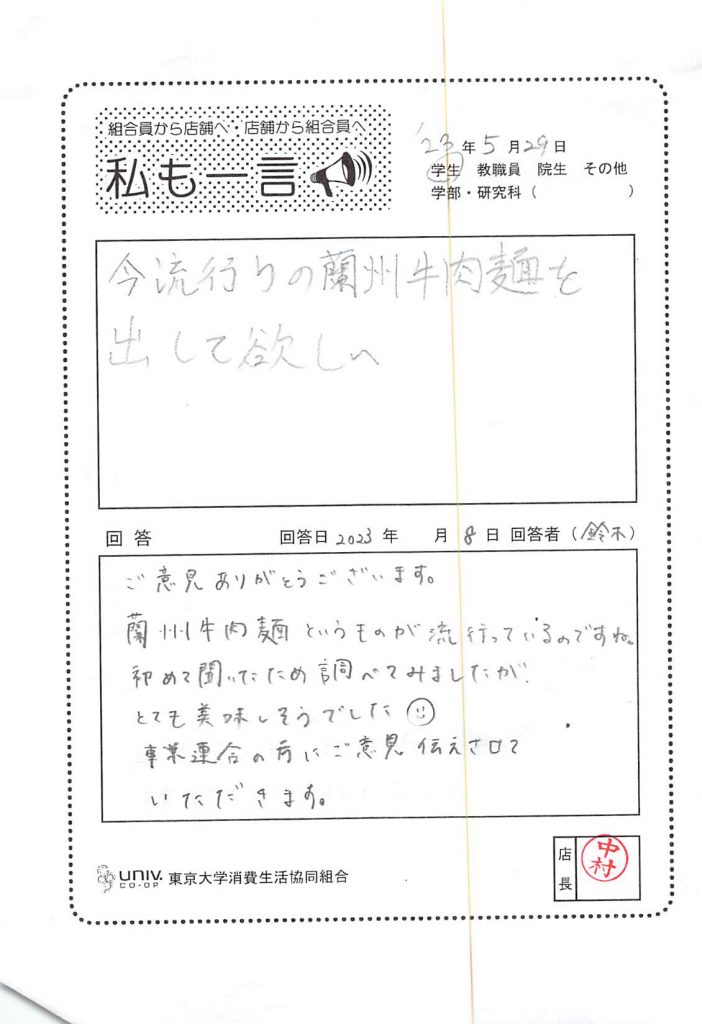 組合員から店舗へ・店舗から組合員へ
私も一言
'23年5月29日
学生 教職員 院生 その他
学部・研究科（ ）
今流行りの蘭州牛肉麺を
出して欲しい
回答 回答日2023年 月8日 回答者（鈴木）
ご意見ありがとうございます。
蘭州牛肉麺というものが流行っているのですね。
初めて聞いたため調べてみましたが、
とても美味しそうでした
事業連合の方にご意見伝えさせて
いただきます。
店長
中村
UNIV.
CO-OP
東京大学消費生活協同組合